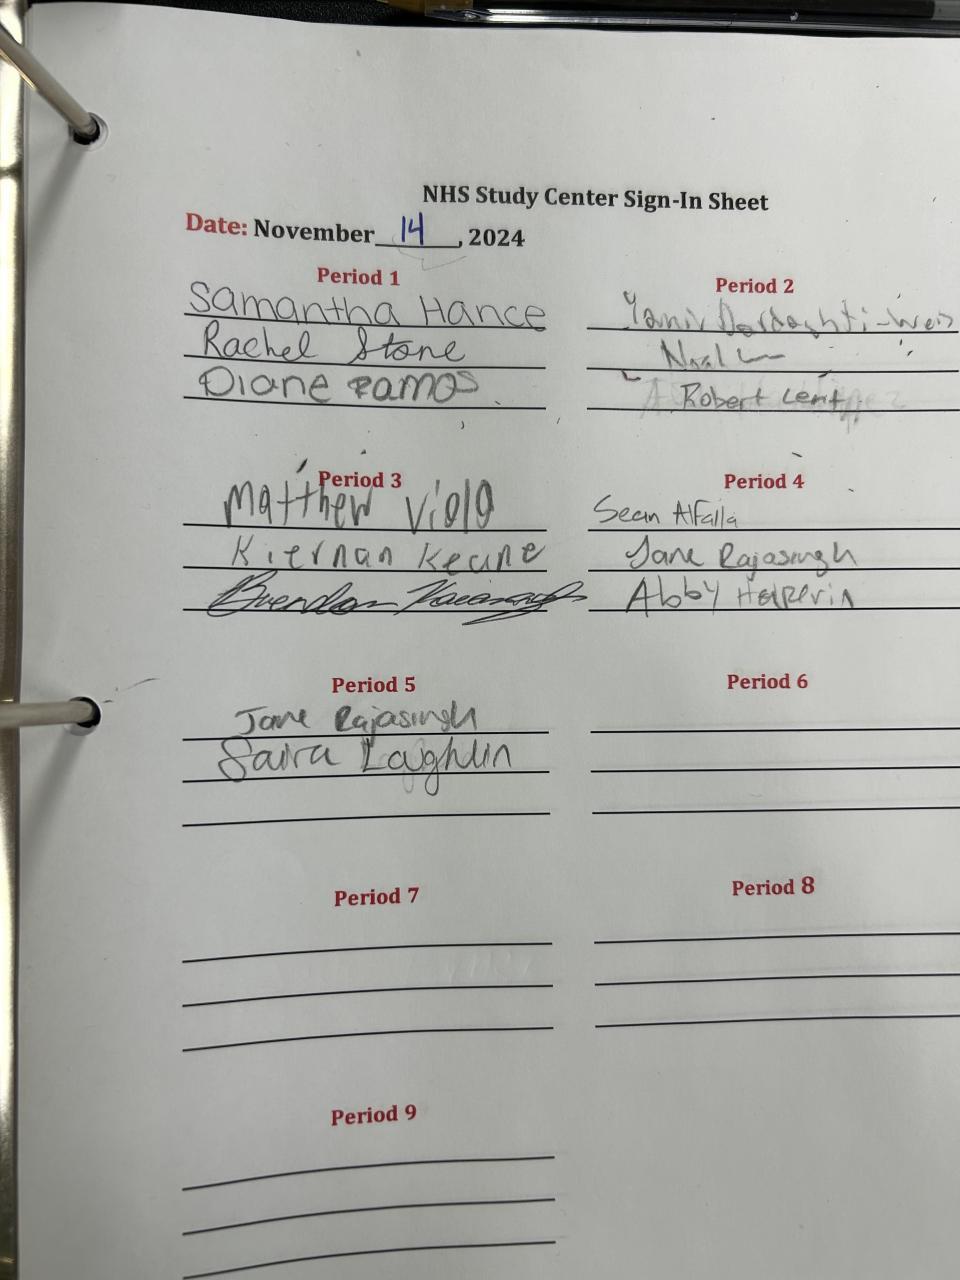 NHS Study Center Sign-In Sheet
Date: November 14, 2024
Period 1
Samantha Hance
Rachel Stone
Diane Ramos
Period 2
Yamir Dardashti-Weis
Robert Lent
Period 3
Matthew Viola
Kiernan Keane
Brendan Kavanagh
Period 4
Sean AlFalla
Jane Rajasingh
Abby Halperin
Period 5
Jane Rajasingh
Saira Laughlin
Period 6
Period 7
Period 8
Period 9